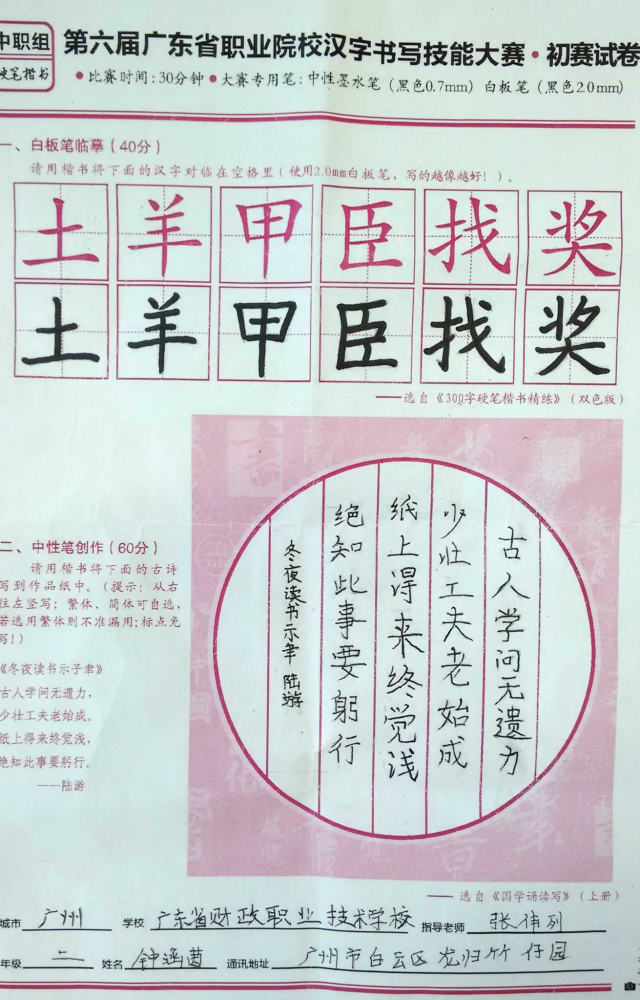 中职组
硬笔楷书
第六届广东省职业院校汉字书写技能大赛·初赛试卷
●比赛时间:30分钟●大赛专用笔:中性墨水笔（黑色0.7mm）白板笔（黑色2.0mm）
一、白板笔临摹（40分）
请用楷书将下面的汉字对临在空格里（使用2.0mm白板笔，写的越像越好！）。
土羊甲臣找奖
土羊甲臣找奖
——选自《300字硬笔楷书精练》（双色版）
二、中性笔创作（60分）
请用楷书将下面的古诗
写到作品纸中。（提示：从右
往左竖写；繁体、简体可自选，
若选用繁体则不准漏用;标点免
写!）
《冬夜读书示子聿》
古人学问无遗力，
少壮工夫老始成。
纸上得来终觉浅，
绝知此事要躬行。
——陆游
古人学问无遗力
少壮工夫老始成
纸上得来终觉浅
绝知此事要躬行
冬夜读书示聿 陆游
——选自《国学诵读写》（上册）
城市 广州 学校 广东省财政职业技术学校 指导老师 张伟列
年级 二 姓名 钟涵茵 通讯地址 广州市白云区龙归竹仔园